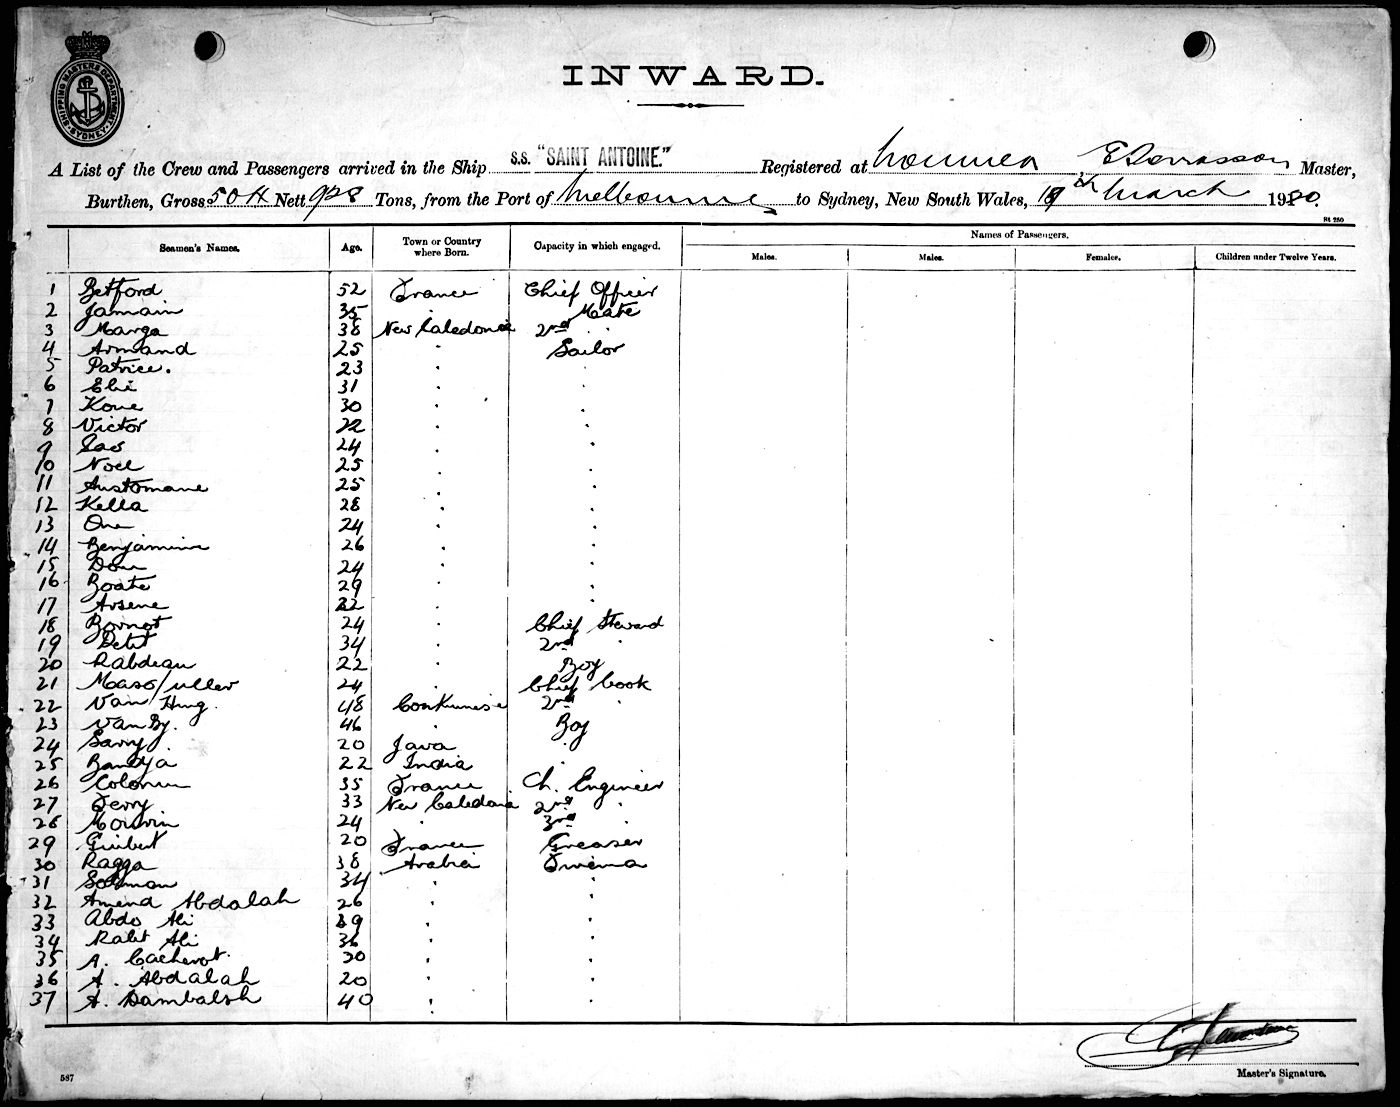 SHIPPING MASTER'S DEPARTMENT SYDNEY
INWARD.
A List of the Crew and Passengers arrived in the Ship S.S. "SAINT ANTOINE." Registered at Noumea Master,
Burthen, Gross Nett 928 Tons, from the Port of Melbourne to Sydney, New South Wales, March 19
St 250
Seamen's Names. Age. Town or Country where Born. Capacity in which engaged. Names of Passengers.
Males. Males. Females. Children under Twelve Years.
1 Betford 52 France Chief Officer
2 Jamain 35 " Mate
3 Marga 38 New Caledonia 2nd "
4 Armand 25 " Sailor
5 Patrice. 23 " "
6 Elie 31 " "
7 Kone 30 " "
8 Victor 22 " "
9 24 " "
10 Noel 25 " "
11 Austomane 25 " "
12 Kella 28 " "
13 One 24 " "
14 Benjamin 26 " "
15 24 " "
16 Boate 29 " "
17 Arsene 22 " "
18 Bornet 24 " Chief Steward
19 34 " 2nd "
20 Rabdeau 22 " Boy
21 24 " Chief Cook
22 Van Hung 48 2nd "
23 Van By. 46 " Boy
24 Sarry 20 Java "
25 Bandja 22 India "
26 Colonin 35 France Ch. Engineer
27 Ferry 33 New Caledonia 2nd "
28 24 " 3rd "
29 Guibert 20 France Greaser
30 Ragga 38 Arabia
31 Soliman 34 " "
32 Amend Abdalah 26 " "
33 Abdo Ali 39 " "
34 Ali 36 " "
35 A. Cacherot. 30 " "
36 A. Abdalah 20 " "
37 A. Dambalsh 40 " "
Master's Signature.
587